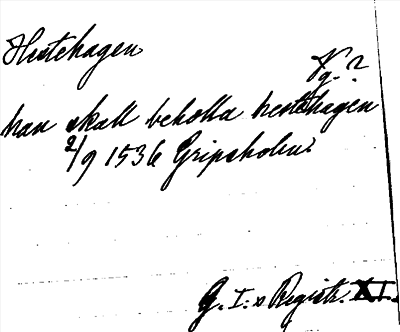 Hestehagen
Vg. ?
han skall beholla hestehagen
2/9 1536 Gripsholm.
G. I:s Registr. XI.